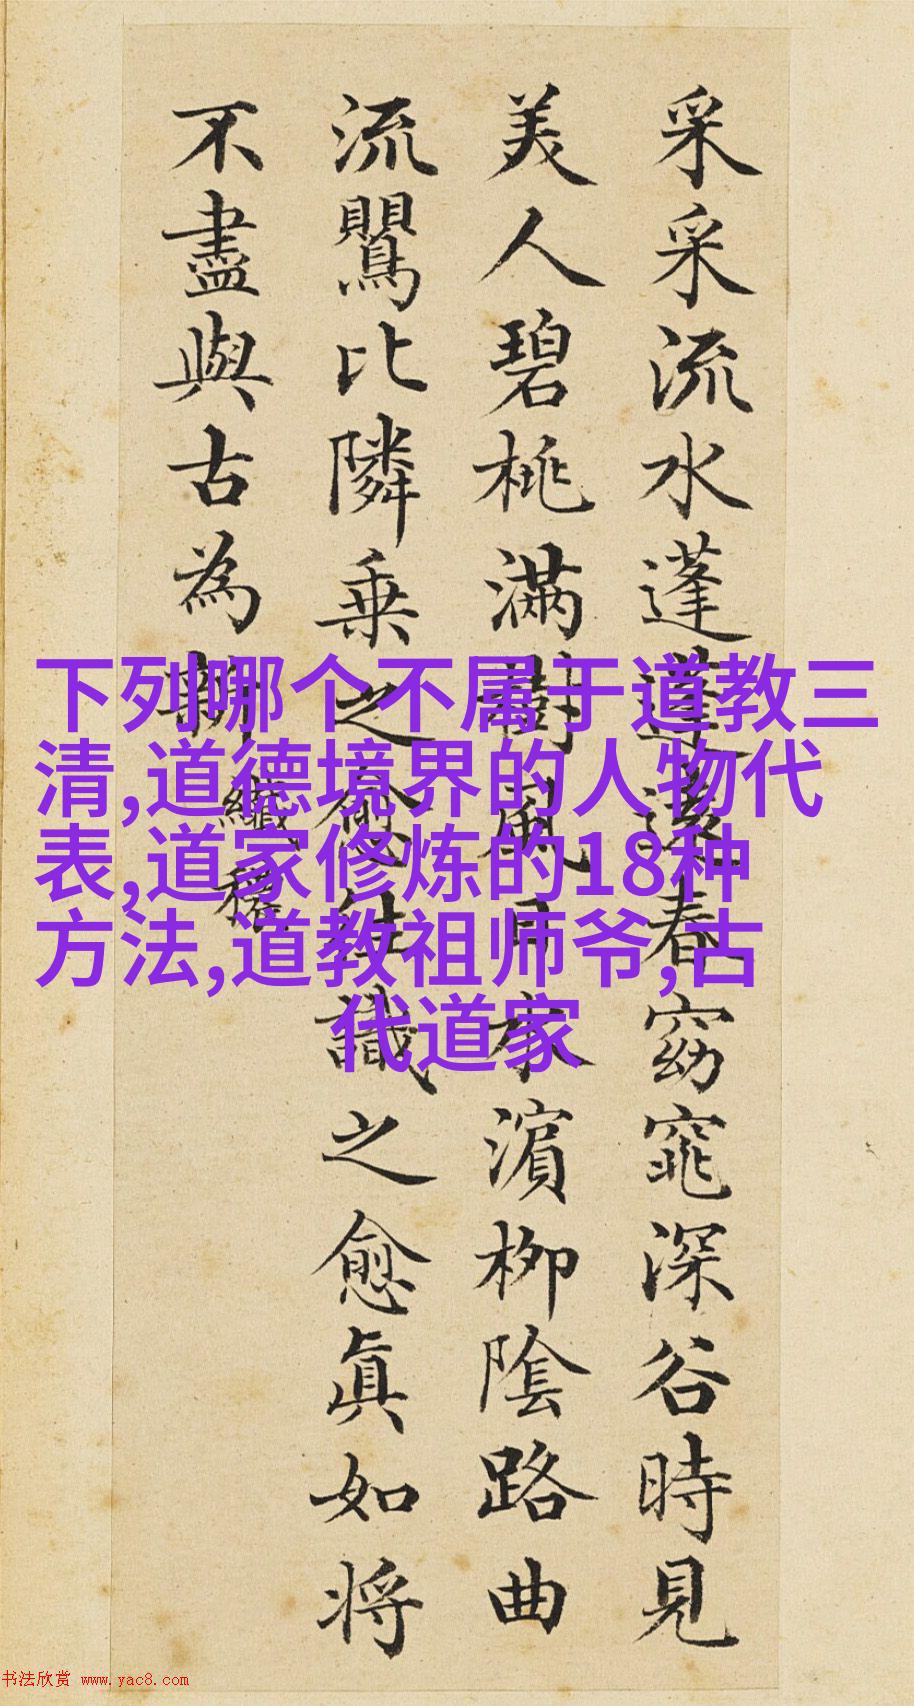 采采流水蓬蓬遠春窈窕深谷時見
美人碧桃滿樹風日水濱柳陰路曲
流鸎比隣乗之愈往識之愈眞如将
不盡與古為新
纖穠
下列哪个不属于道教三
清,道德境界的人物代
表,道家修炼的18种
方法,道教祖师爷,古
代道家
书法欣赏 www.yac8.com